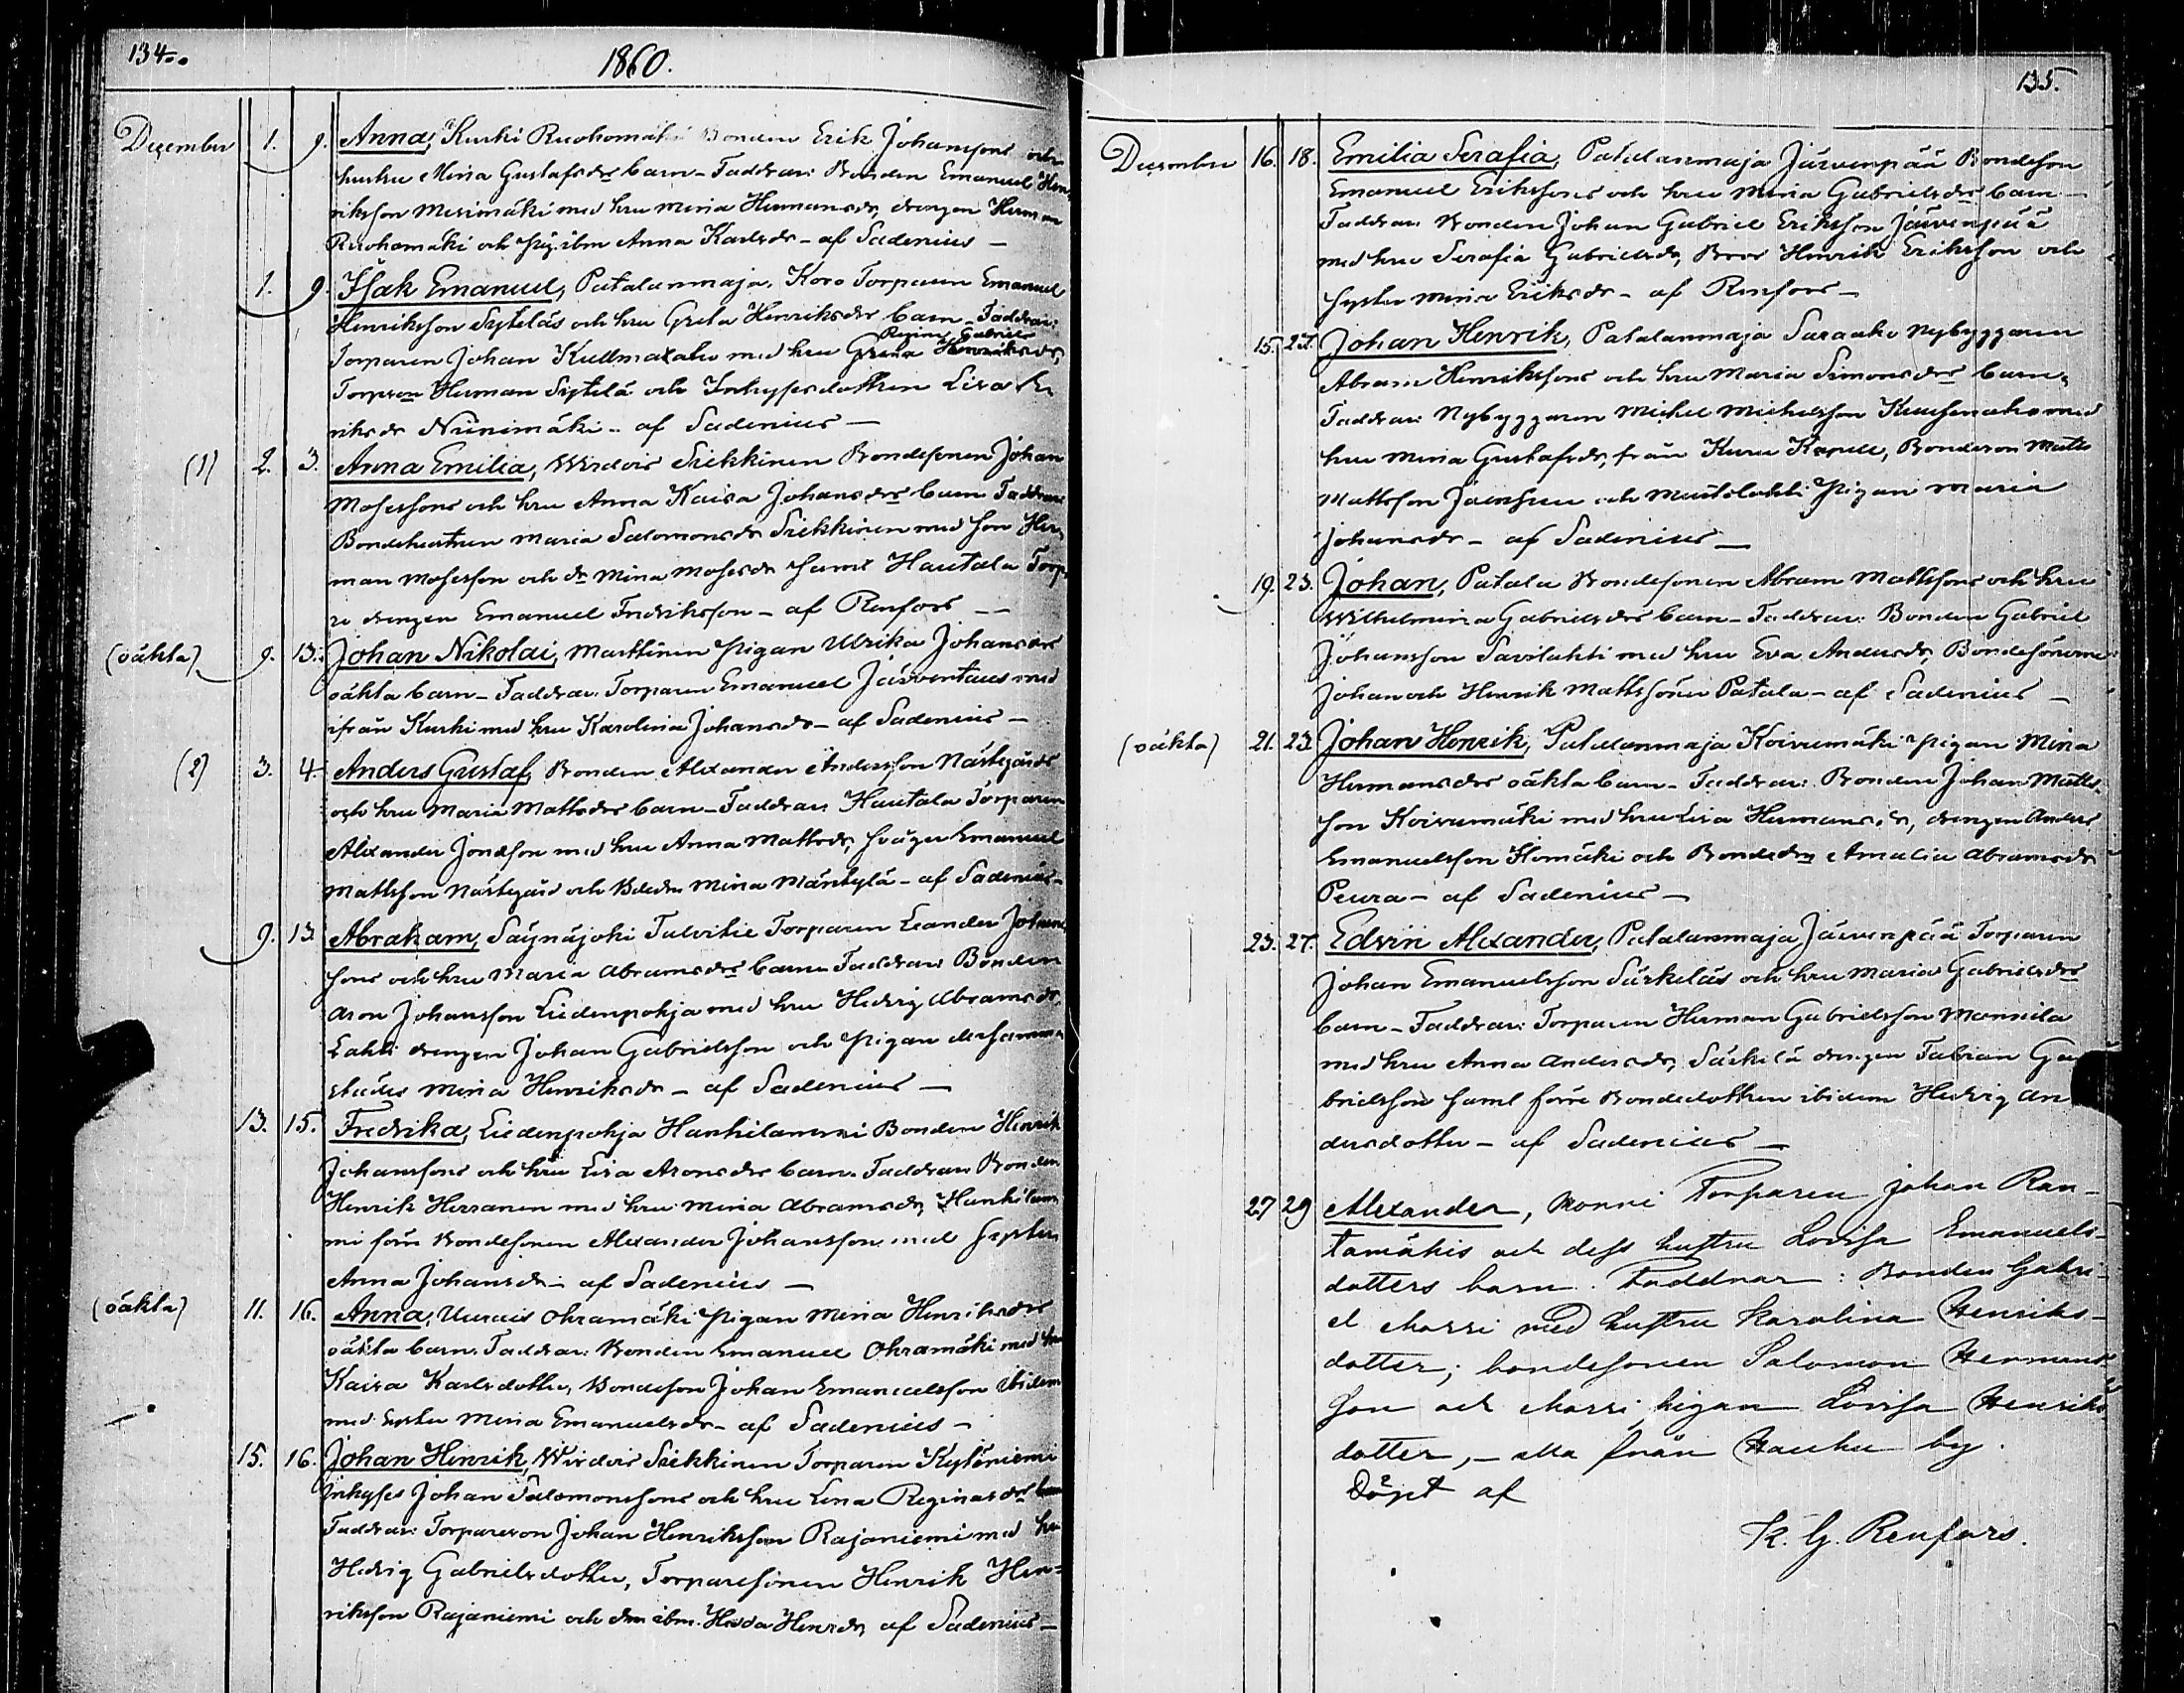 134.
1860.
December 1. 9. Anna, Kurki Ruohomäki Bonden Erik Johanssons och
hustru Mina Gustafsdrs barn - Faddrar: Bonden Emanuel Hen-
riksson Merimäki med hru Mina Hermansdr, drengen Herman
Ruohomäki och pig. ibm Anna Karlsdr - af Sadenius -
1. 9. Isak Emanuel, Patalanmaja, Koro Torparen Emanuel
Henriksson Syteläs och hru Greta Henriksdrs barn - Faddrar:
Regina Gabriels
Torparen Johan Kullmalaho med hru Henriksdr,
Torpson Herman Sytelä och Inhysesdottren Lisa Hen
riksdr Niinimäki - af Sadenius -
(1) 2. 3. Anna Emilia, Wirdois Siekkinen Bondesonen Johan
Mosessons och hru Anna Kaisa Johansdrs barn Faddrar
Bondehustrun Maria Salomonsdr Siekkinen med son Her-
man Mosesson och dr Mina Mosesdr samt Hautala Torp
re drengen Emanuel Fredriksson - af Renfors -
(oäkta) 9. 13. Johan Nikolai, Marttinen Pigan Ulrika Johansdrs
oäkta barn - Faddrar: Torparen Emanuel Järventaus med
ifrån Kurki med hru Karolina Johansdr - af Sadenius -
(2) 3. 4. Anders Gustaf, Bonden Alexander Andersson Nästegårds
och hru Maria Mattsdrs barn - Faddrar: Hautala Torparen
Alexander Jonasson med hru Anna Mattsdr, svåger Emanuel
Mattsson Nästegård och Bdedr Mina Mäntylä - af Sadenius -
9. 13. Abraham, Saynäjoki Talvitie Torparen Leander Johans
sons och hru Maria Abramsdrs barn Faddrar: Bonden
Aron Johansson Liedenpohja med hru Hedvig Abramsdr,
Lahti drengen Johan Gabrielsson och Pigan dersamma
städes Mina Henriksdr - af Sadenius -
13. 15. Fredrika, Liedenpohja Hankilanmi Bonden Henrik
Johanssons och hru Lisa Aronsdrs barn. Faddrar: Bonden
Henrik Herranen med hru Mina Abramsdr, Hankilan
mi förre Bondesonen Alexander Johansson med Syster
Anna Johansdr - af Sadenius -
(oäkta) 11. 16. Anna, Uurais Ohramäki Pigan Mina Henriksdrs
oäkta barn. Faddrar: Bonden Emanuel Ohramäki med hru
Kaisa Karlsdotter, Bondeson Johan Emanuelsson ibidem
med Syster Mina Emanuelsdr - af Sadenius -
15. 16. Johan Henrik, Wirdois Siekkinen Torparen Kyläniemi
Inhyses Johan Salomonssons och hru Lena Reginasdrs barn
Faddrar: Torpareson Johan Henriksson Rajaniemi med hru
Hedvig Gabrielsdotter, Torparesonen Henrik Hen-
riksson Rajaniemi och drn ibm. Hedda Henrdr, af Sadenius -
135.
December 16. 18. Emilia Serafia, Patalanmaja Järvenpää Bondeson
Emanuel Erikssons och hru Mina Gabrielsdrs barn -
Faddrar: Bonden Johan Gabriel Eriksson Järvenpää
med hru Serafia Gabrielsdr, Bror Henrik Eriksson och
Syster Mina Eriksdr - af Renfors -
15. 27. Johan Henrik, Patalanmaja Saraaho Nybyggaren
Abram Henrikssons och hru Maria Simonsdrs barn,
Faddrar: Nybyggaren Michel Michelsson med
hru Mina Gustafsdr, från Kuru Kapell, Bondeson Matts
Mattsson och Mustalahti Pigan Maria
Johansdr - af Sadenius -
19. 23. Johan, Patala Bondesonen Abram Mattssons och hru
Wilhelmina Gabrielsdrs barn - Faddrar: Bonden Gabriel
Johansson Savilahti med hru Eva Andersdr, Bondesönerne
Johan och Henrik Mattssöner Patala - af Sadenius -
(oäkta) 21. 23. Johan Henrik, Patalanmaja Koivumäki Pigan Mina
Hermansdrs oäkta barn - Faddrar: Bonden Johan Matts-
son Koivumäki med hru Lisa Hermansdr, drengen Anders
Emanuelsson Homäki och Bondedrn Amalia Abramsdr
Peura - af Sadenius -
23. 27. Edvin Alexander, Patalanmaja Järvenpää Torparen
Johan Emanuelsson Särkeläs och hru Maria Gabrielsdrs
barn - Faddrar: Torparen Herman Gabrielsson Mannila
med hru Anna Andersdr, Särkelä drengen Fabian Ga
brielsson samt förre Bondedottren ibidem Hedvig An
dersdotter - af Sadenius -
27 29 Alexander, Monni Torparen Johan Ran-
tamäkis och dess hustru Lovisa Emanuels-
dotters barn. Faddrar: Bonden Gabri-
el Marri med hustru Karolina Henriks-
dotter; bondesonen Salomon Hermans
son och Marri pigan Lovisa Henriks
dotter, - alla från Hauhu by.
Döpt af
K. G. Renfors.